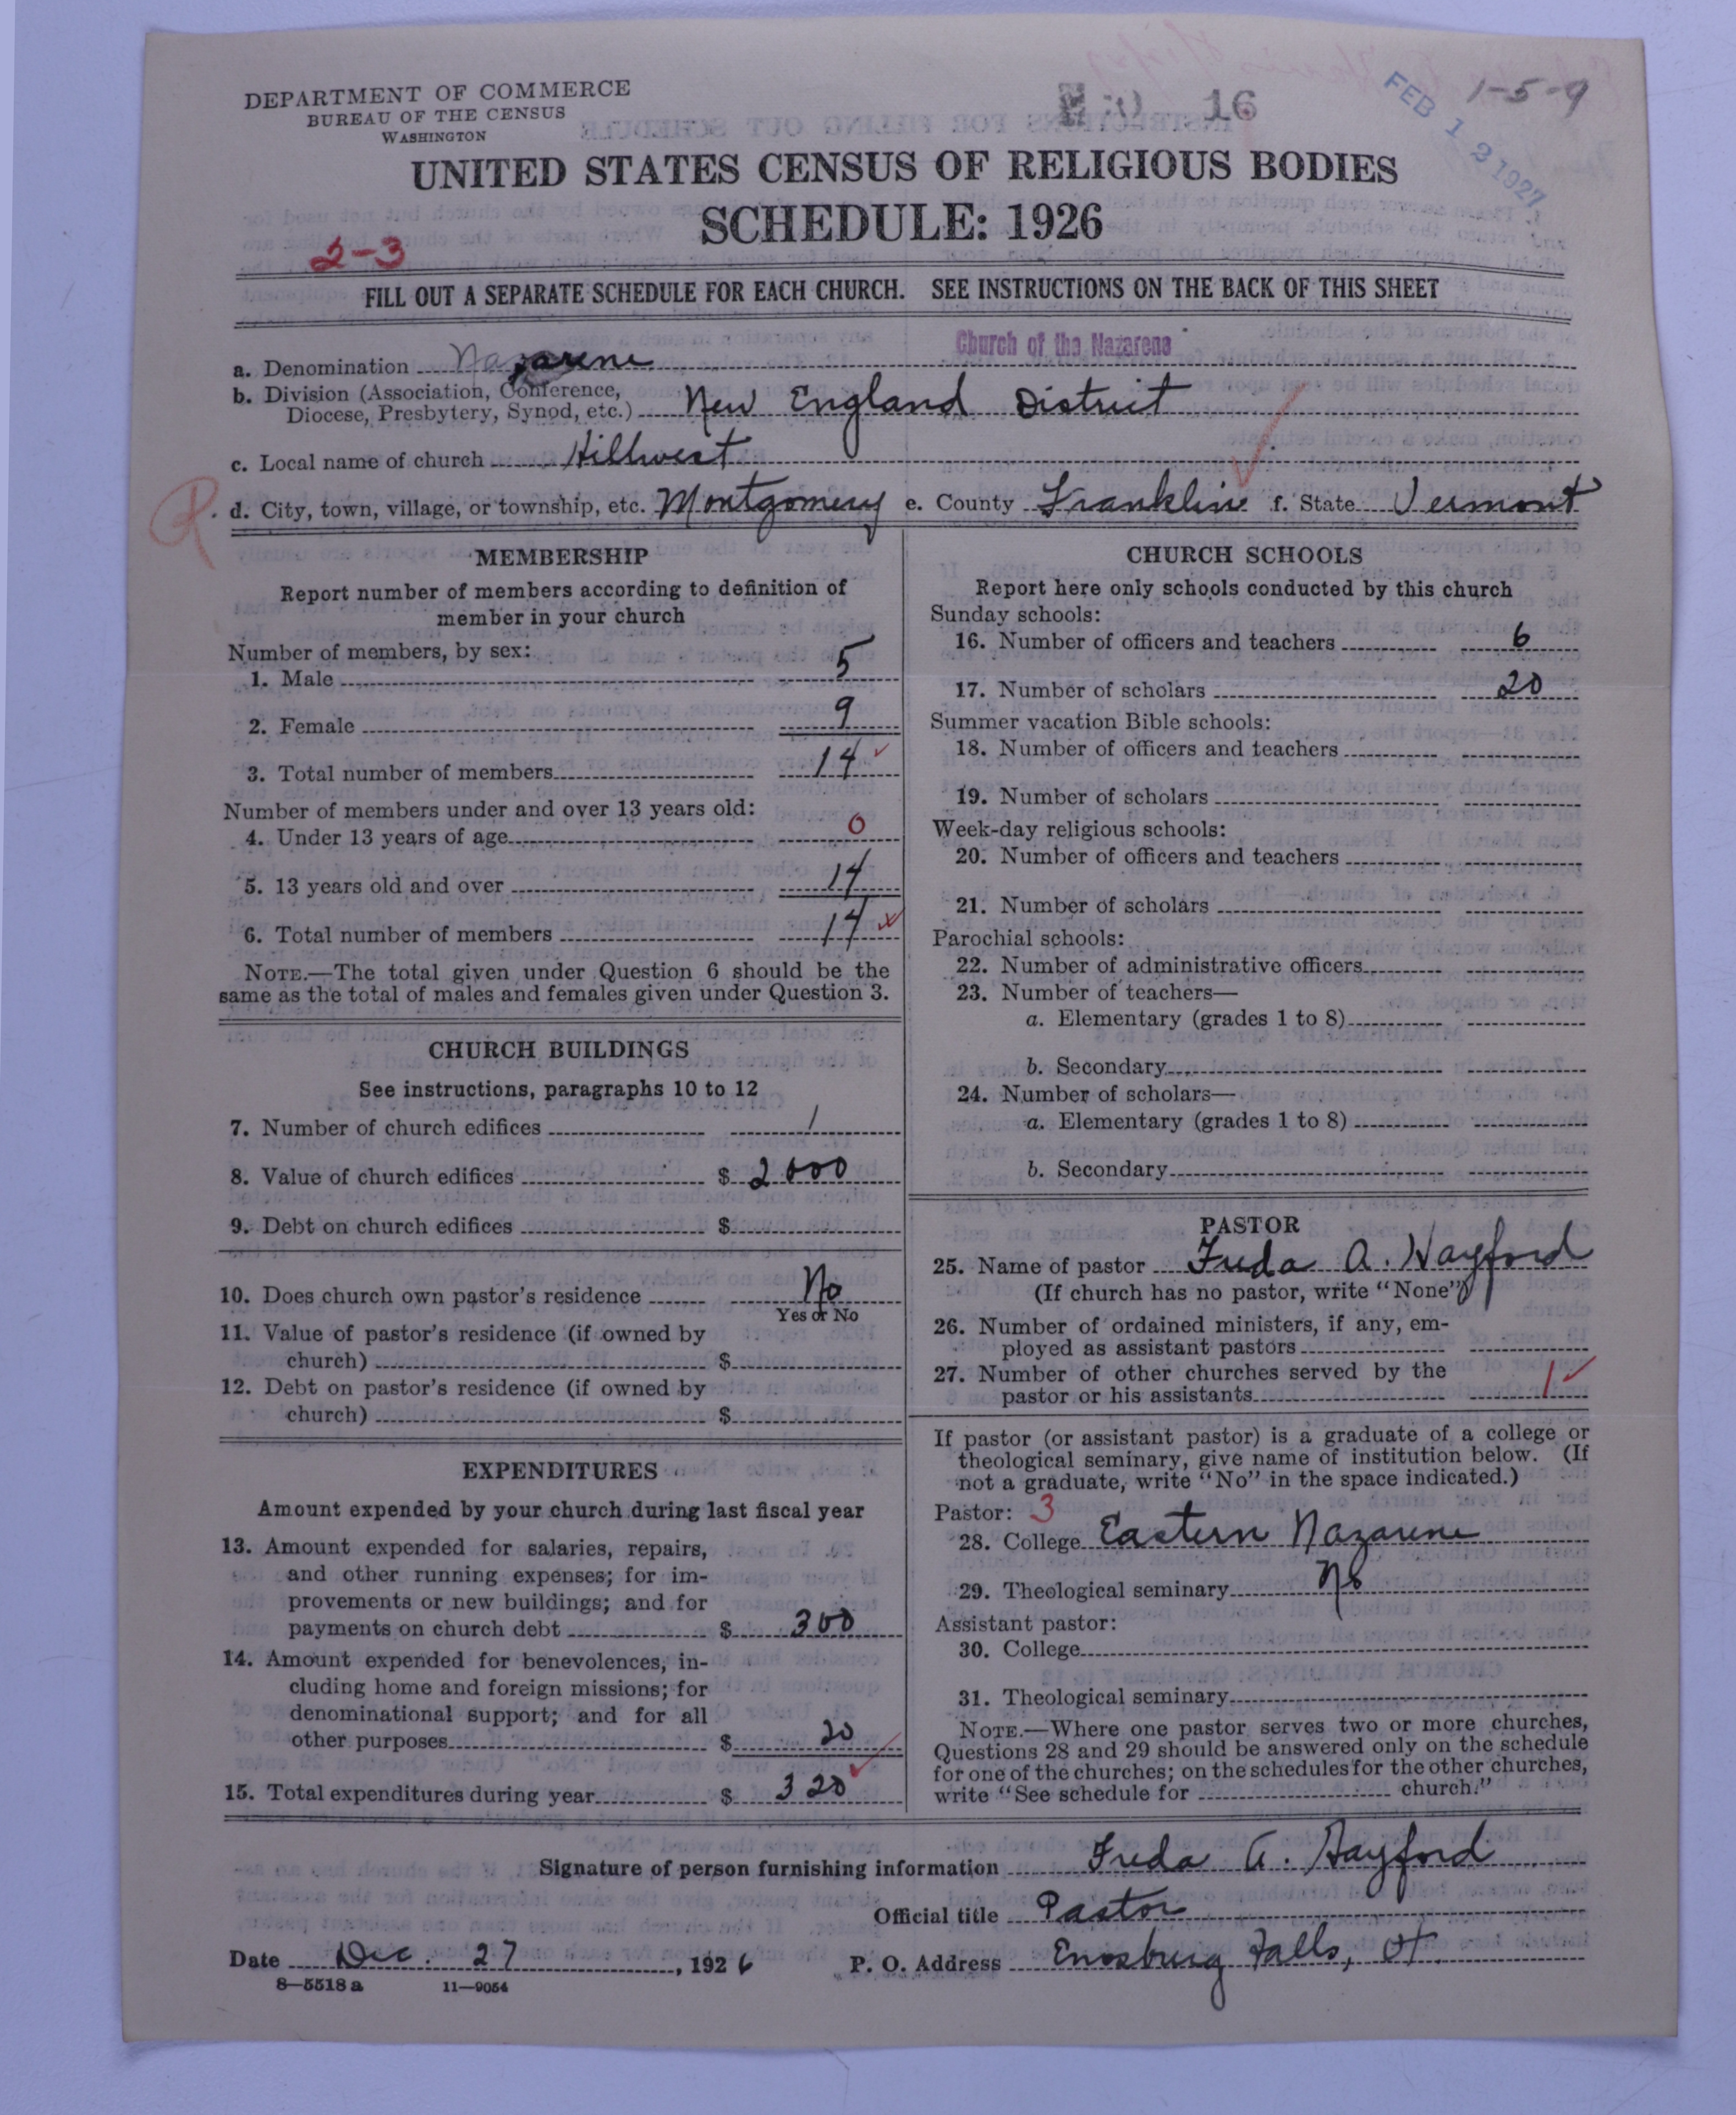 DEPARTMENT OF COMMERCE
BUREAU OF THE CENSUS
WASHINGTON
16
1-5-9
FEB 12 1927
UNITED STATES CENSUS OF RELIGIOUS BODIES
SCHEDULE: 1926
2-3
FILL OUT A SEPARATE SCHEDULE FOR EACH CHURCH. SEE INSTRUCTIONS ON THE BACK OF THIS SHEET
Church of the Nazarene
a. Denomination Nazarene
b. Division (Association, Conference,
Diocese, Presbytery, Synod, etc.) New England District
c. Local name of church Hillwest
d. City, town, village, or township, etc. Montgomery e. County Franklin f. State Vermont
MEMBERSHIP
Report number of members according to definition of
member in your church
Number of members, by sex:
1. Male 5
2. Female 9
3. Total number of members 14
Number of members under and over 13 years old:
4. Under 13 years of age 0
5. 13 years old and over 14
6. Total number of members 14
NOTE.—The total given under Question 6 should be the
same as the total of males and females given under Question 3.
CHURCH BUILDINGS
See instructions, paragraphs 10 to 12
7. Number of church edifices 1
8. Value of church edifices $ 2000
9. Debt on church edifices $
10. Does church own pastor's residence No
Yes or No
11. Value of pastor's residence (if owned by
church) $
12. Debt on pastor's residence (if owned by
church) $
EXPENDITURES
Amount expended by your church during last fiscal year
13. Amount expended for salaries, repairs,
and other running expenses; for im-
provements or new buildings; and for
payments on church debt $ 300
14. Amount expended for benevolences, in-
cluding home and foreign missions; for
denominational support; and for all
other purposes $ 20
15. Total expenditures during year $ 320
CHURCH SCHOOLS
Report here only schools conducted by this church
Sunday schools:
16. Number of officers and teachers 6
17. Number of scholars 20
Summer vacation Bible schools:
18. Number of officers and teachers
19. Number of scholars
Week-day religious schools:
20. Number of officers and teachers
21. Number of scholars
Parochial schools:
22. Number of administrative officers
23. Number of teachers—
a. Elementary (grades 1 to 8)
b. Secondary
24. Number of scholars—
a. Elementary (grades 1 to 8)
b. Secondary
PASTOR
25. Name of pastor Freda A. Hayford
(If church has no pastor, write "None")
26. Number of ordained ministers, if any, em-
ployed as assistant pastors
27. Number of other churches served by the
pastor or his assistants 1
If pastor (or assistant pastor) is a graduate of a college or
theological seminary, give name of institution below. (If
not a graduate, write "No" in the space indicated.)
Pastor: 3
28. College Eastern Nazarene
29. Theological seminary No
Assistant pastor:
30. College
31. Theological seminary
NOTE.—Where one pastor serves two or more churches,
Questions 28 and 29 should be answered only on the schedule
for one of the churches; on the schedules for the other churches,
write "See schedule for church."
Signature of person furnishing information Freda A. Hayford
Official title Pastor
Date Dec. 27, 1926 P. O. Address Enosburg Falls, Vt.
8—5518 a 11—9054